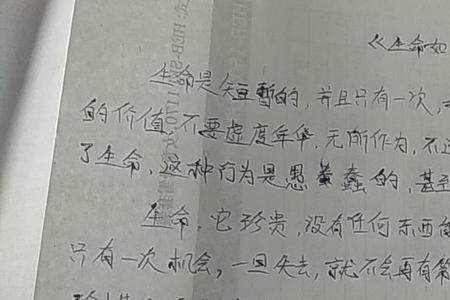 《生命如
生命是短暂的，并且只有一次，
的价值，不要虚度年华，无所作为，不
了生命，这种行为是愚蠢的，甚至
生命，它珍贵，没有任何东西能
只有一次机会，一旦失去，就不会再有第